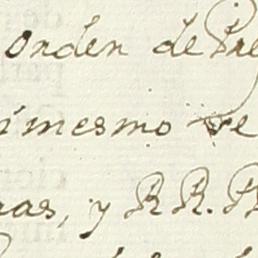 orden de Pre
imesmo se
ras, y R R. P